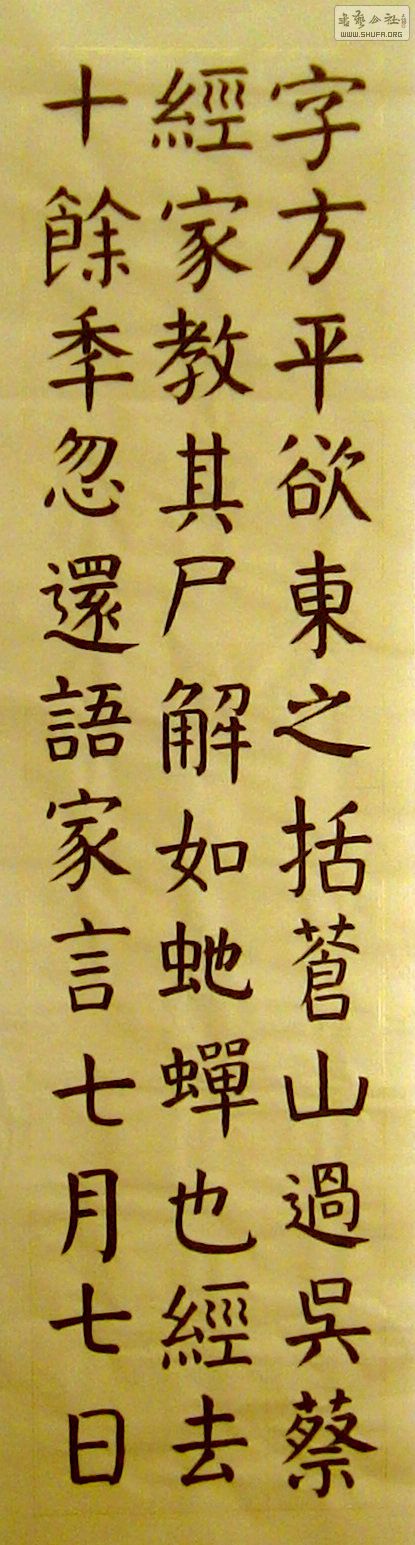 字方平欲東之括蒼山過吳蔡
經家教其尸解如虵蟬也經去
十餘季忽還語家言七月七日
WWW.SHUFA.ORG